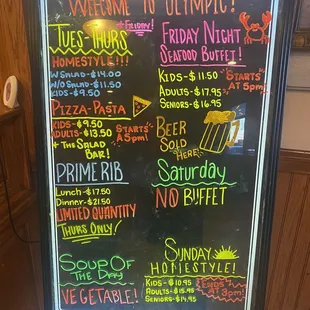 WELCOME TO OLYMPIC!
TUES-THURS
HOMESTYLE!!!
W/SALAD-$14.00
W/O SALAD-$11.50
KIDS-$9.50
PIZZA-PASTA
KIDS-$9.50
ADULTS-$13.50
+ THE SALAD
BAR!
STARTS
AT 5PM!
PRIME RIB
LUNCH-$17.50
DINNER-$21.50
LIMITED QUANTITY
THURS ONLY!
SOUP OF
THE DAY
VEGETABLE!
FRIDAY NIGHT
SEAFOOD BUFFET!
KIDS-$11.50
ADULTS-$17.95
SENIORS-$16.95
STARTS
AT 5PM!
BEER
SOLD
HERE!
SATURDAY
NO BUFFET
SUNDAY
HOMESTYLE!
KIDS-$10.95
ADULTS-$15.95
SENIORS-$14.95
ENDS
AT 3PM!